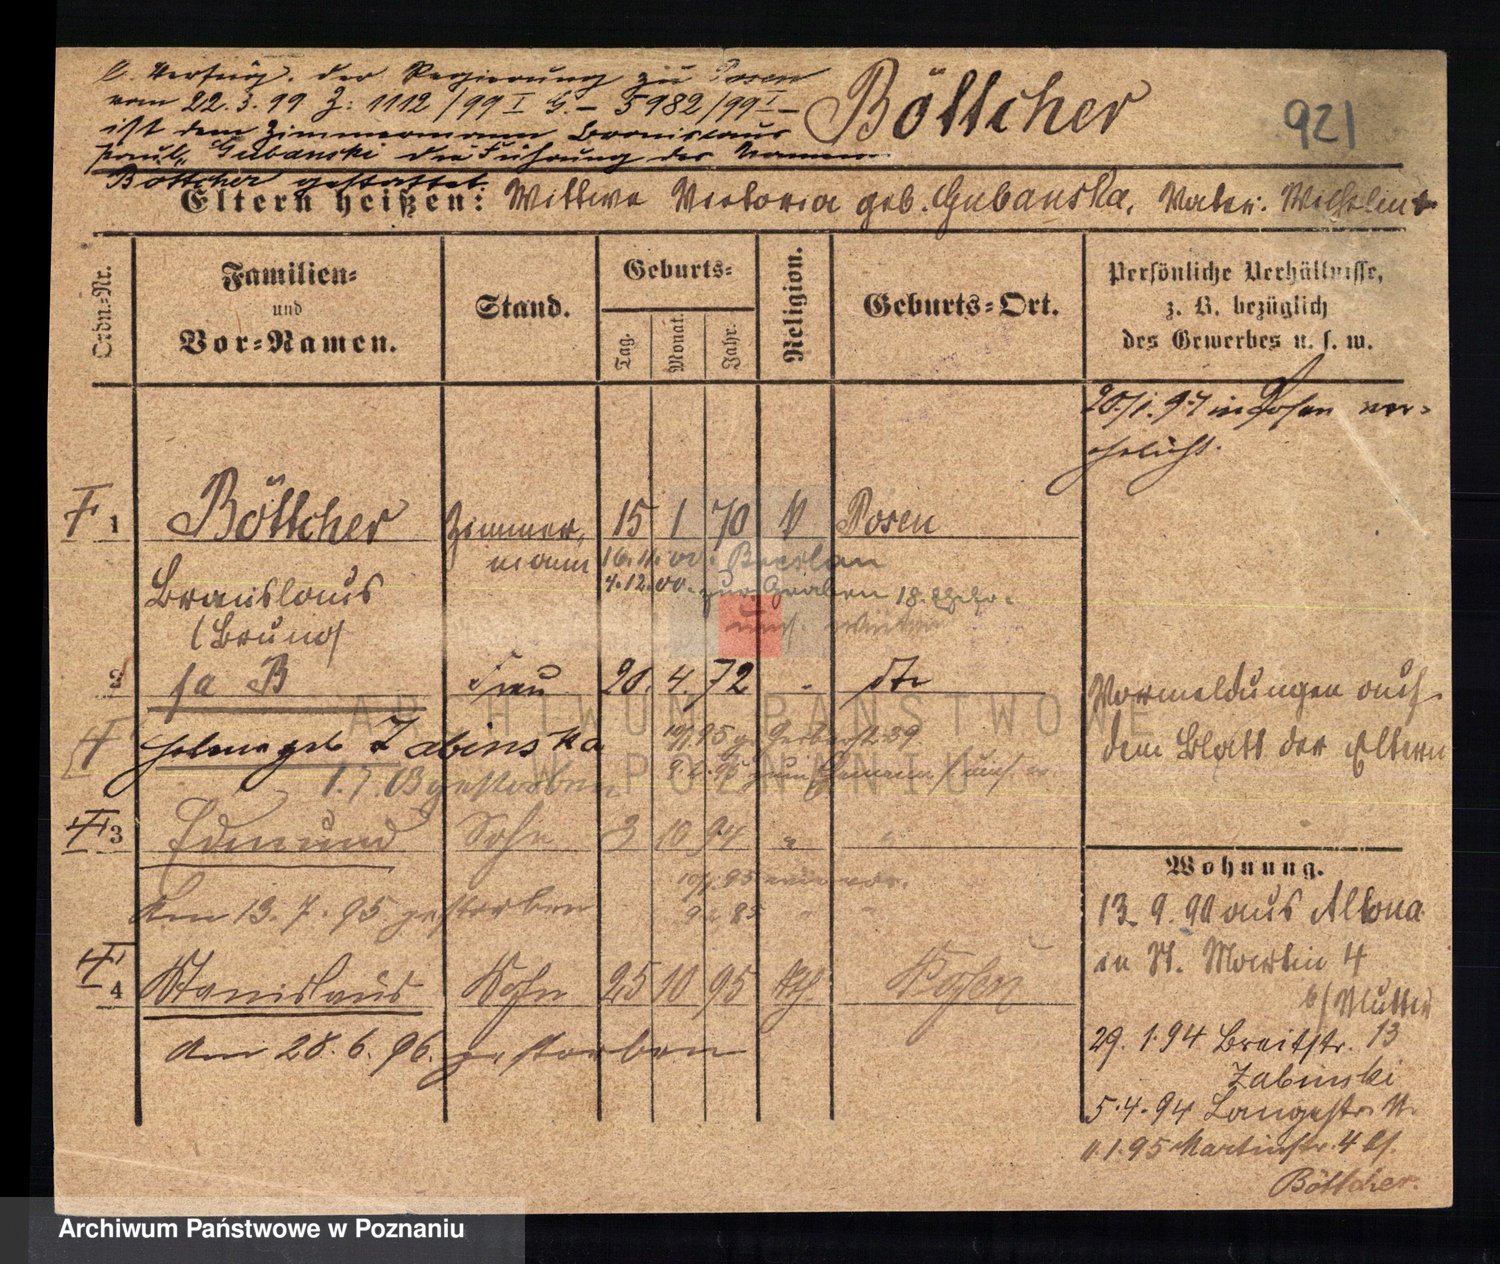 d. Verfüg. der Regierung zu Posen
vom 22.3.99 J: 1112/99 I G. – 5982/99 I –
ist dem Zimmermann Bronislaus
Paul Gubanski die Führung des Namens
Böttcher gestattet.
Böttcher
921
Eltern heißen: Wittwe Victoria geb. Gubanska, Vater: Wilhelm
Ordn.-Nr.
Familien-
und
Vor-Namen.
Stand.
Geburts-
Tag.
Monat.
Jahr.
Religion.
Geburts-Ort.
Persönliche Verhältnisse,
z. B. bezüglich
des Gewerbes u. s. w.
20./1. 97 in Posen ver-
ehelicht.
1 Böttcher Zimmer, 15 1 70 Posen
mann 16.11.00. Breslau
Bronislaus 4.12.00. zur. Graben 18.
(Bruno)
2 sa B Frau 20. 4. 72 "
Helene geb Zabinska
1.7. gestorben
Vormeldungen auf
dem Blatt der Eltern
3 Edmund Sohn 3 10 94 " "
10/1.95
Am 13.7.95 gestorben
4 Stanislaus Sohn 25 10 95 kth. Posen
Am 28.6.96. gestorben
Wohnung.
13. 9. 90 aus Altona
in St. Martin 4
b/Mutter
29. 1. 94 Breitstr. 13
Zabinski
5.4.94 Langestr.
11.1.95 Martinstr. 4 bf.
Böttcher.
ARCHIWUM PAŃSTWOWE
W POZNANIU
Archiwum Państwowe w Poznaniu